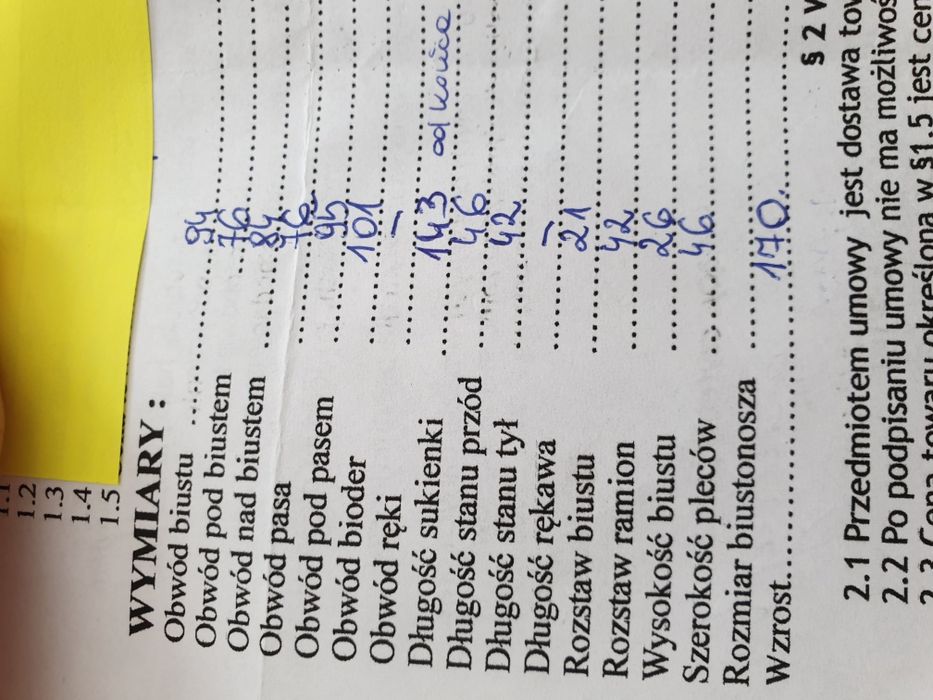 1.1
1.2
1.3
1.4
1.5
WYMIARY :
Obwód biustu ........94........
Obwód pod biustem ........76........
Obwód nad biustem ........84........
Obwód pasa ........76........
Obwód pod pasem ........95........
Obwód bioder ........101........
Obwód ręki ........–........
Długość sukienki ........143 od końca
Długość stanu przód ........46........
Długość stanu tył ........42........
Długość rękawa ........–........
Rozstaw biustu ........21........
Rozstaw ramion ........42........
Wysokość biustu ........26........
Szerokość pleców ........46........
Rozmiar biustonosza ................
Wzrost........170........
§ 2
2.1 Przedmiotem umowy jest dostawa tow
2.2 Po podpisaniu umowy nie ma możliwoś
2.3 Cena towaru określona w §1.5 jest cen